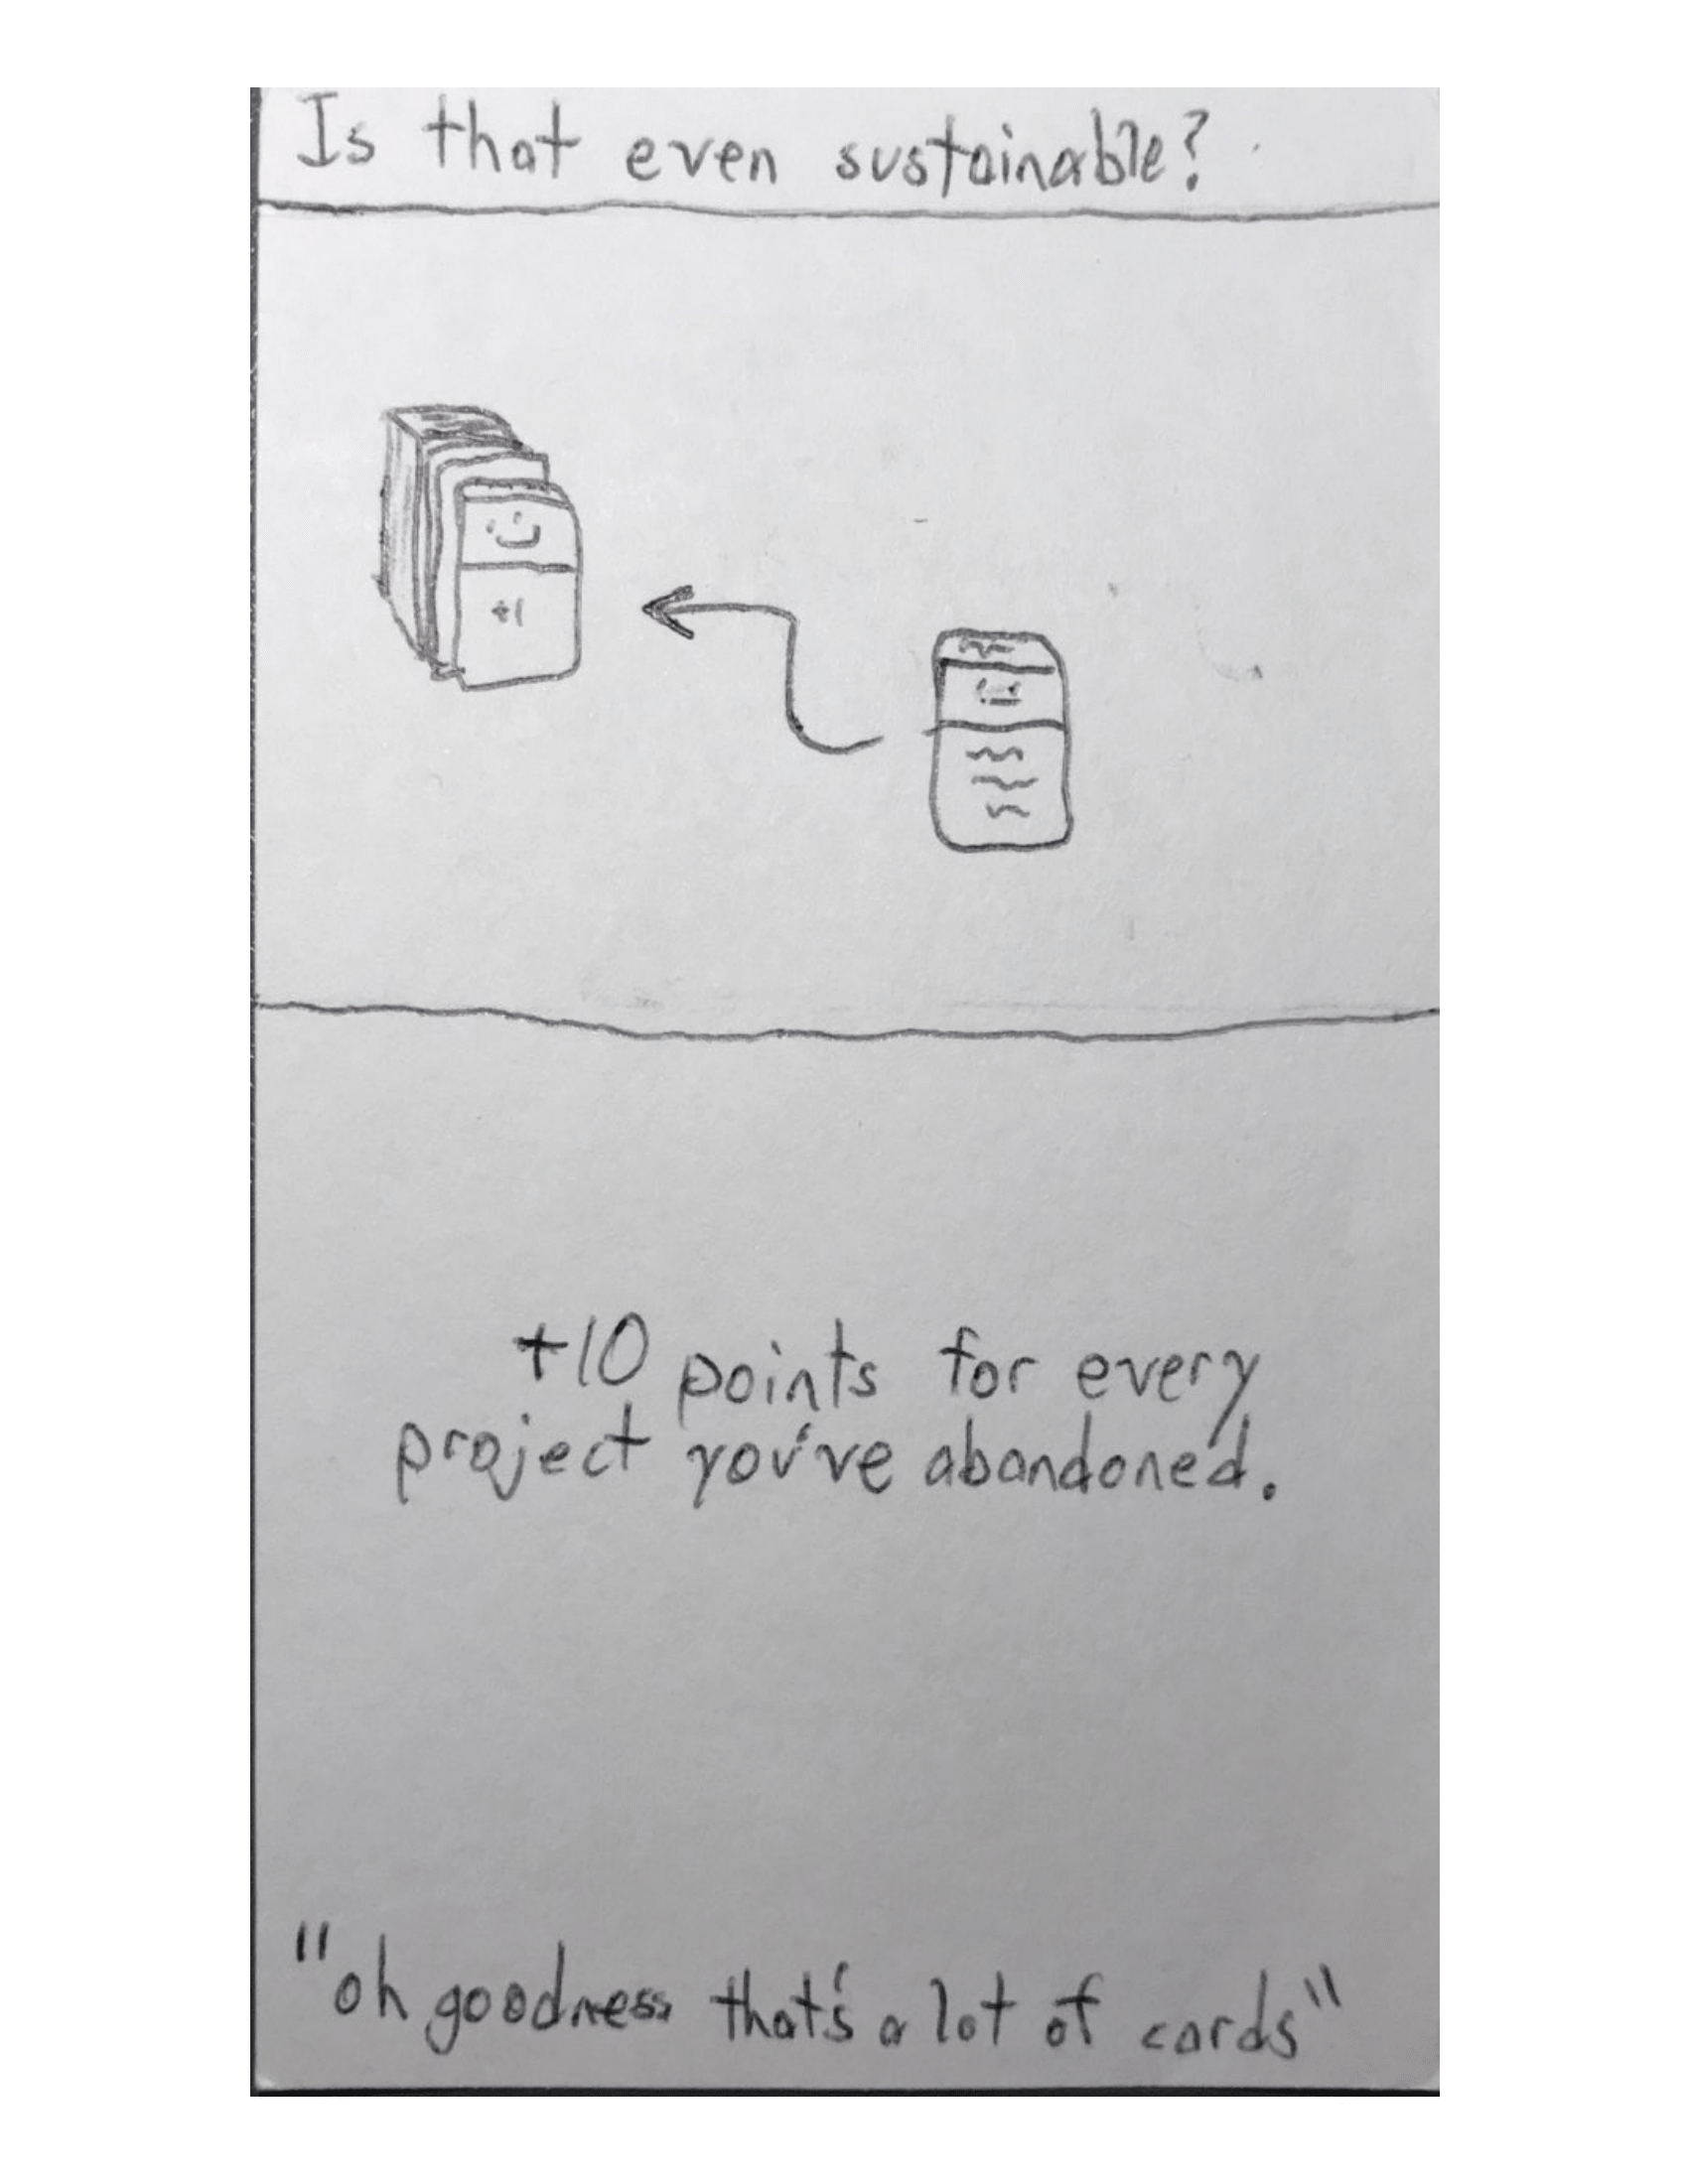 Is that even sustainable?
+1
+10 points for every
project you've abandoned.
"oh goodness that's a lot of cards"